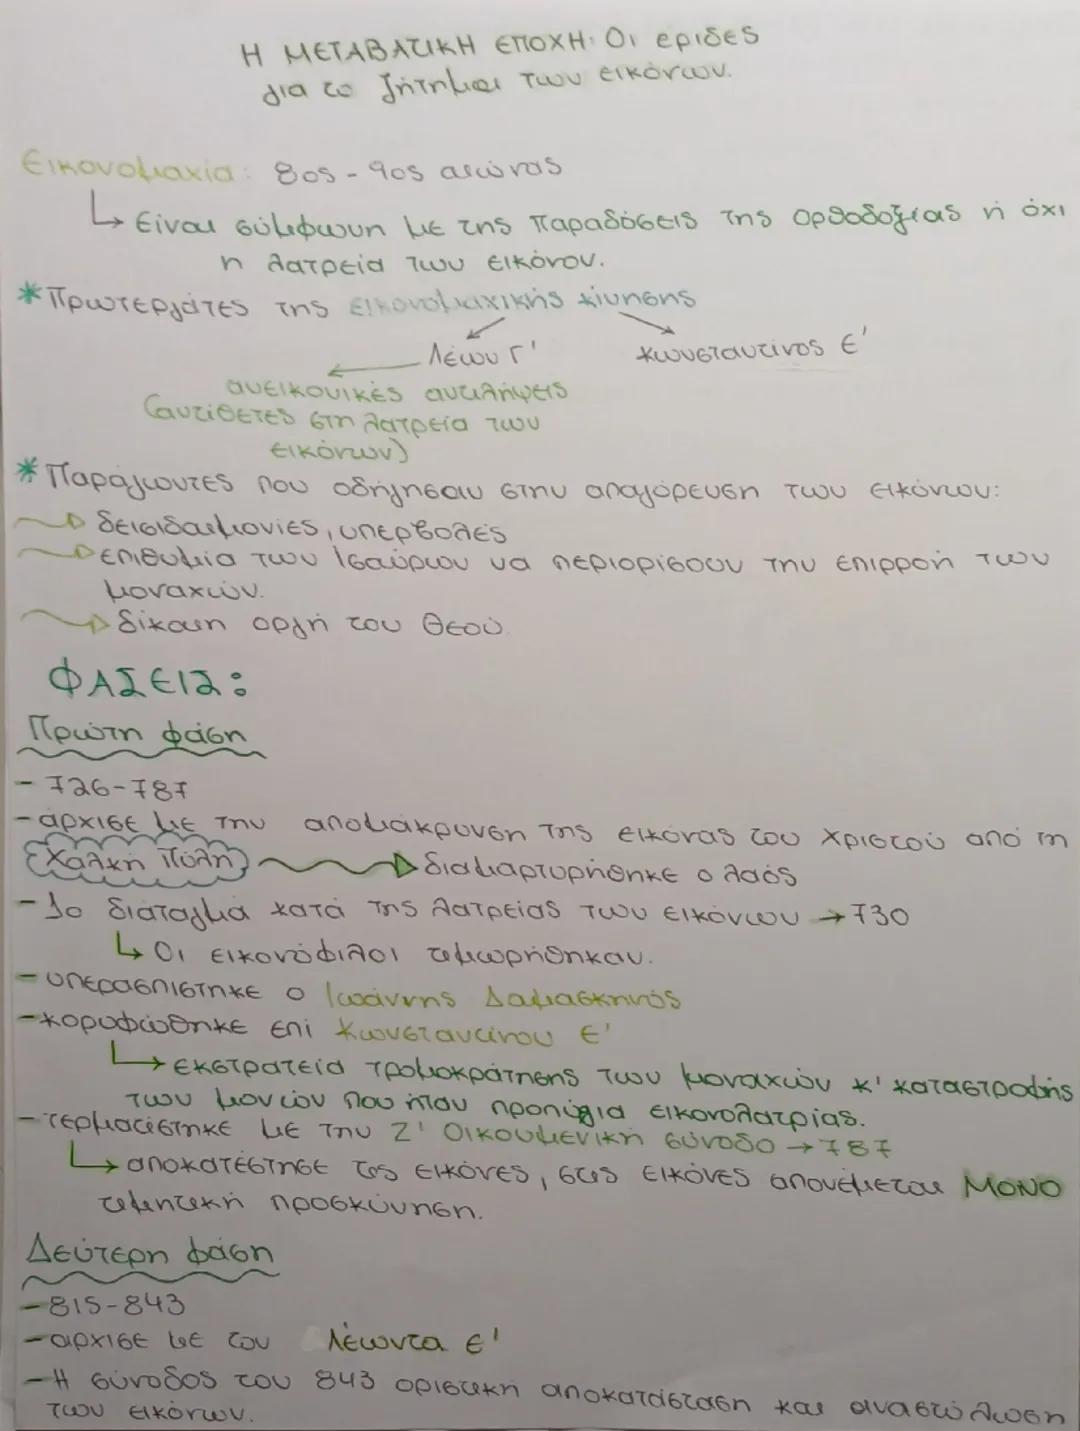 Η ΜΕΤΑΒΑΤΙΚΗ ΕΠΟΧΗ: Οι εριδες
για το ζήτημα των εικόνων.
Εικονομαχία: 8ος - 9ος αιώνας
↳ Είναι σύμφωνη με της παραδόσεις της ορθοδοξίας ή όχι
η λατρεία των εικόνον.
* Πρωτεργάτες της εικονομαχικής κίνησης
Λέων Γ' Κωνσταντίνος Ε'
ανεικονικές αντιλήψεις
(αντίθετες στη λατρεία των
εικόνων)
* Παράγωντες που οδήγησαν στην απαγόρευση των εικόνων:
δεισιδαιμονίες, υπερβολές
επιθυμία των Ισαύρων να περιορίσουν την επιρροή των
μοναχών.
δίκαιη οργή του Θεού.
ΦΑΣΕΙΣ:
Πρώτη φάση
- 726-787
- άρχισε με την απομάκρυνση της εικόνας του Χριστού από τη
Χαλκή Πύλη → διαμαρτυρήθηκε ο λαός
- 1ο διάταγμα κατά της λατρείας των εικόνων → 730
↳ Οι εικονόφιλοι τιμωρήθηκαν.
- υπερασπίστηκε ο Ιωάννης Δαμασκηνός
- κορυφώθηκε επί Κωνσταντίνου Ε'
↳ εκστρατεία τρομοκράτησης των μοναχών κ' καταστροφής
των μονών που ήταν προπύργια εικονολατρίας.
- τερματίστηκε με την Ζ' Οικουμενική σύνοδο → 787
↳ αποκατέστησε τις εικόνες, στις εικόνες απονέμεται ΜΟΝΟ
τιμητική προσκύνηση.
Δεύτερη φάση
- 815-843
- άρχισε με τον Λέωντα Ε'
- Η σύνοδος του 843 οριστική αποκατάσταση και αναστύλωση
των εικόνων.